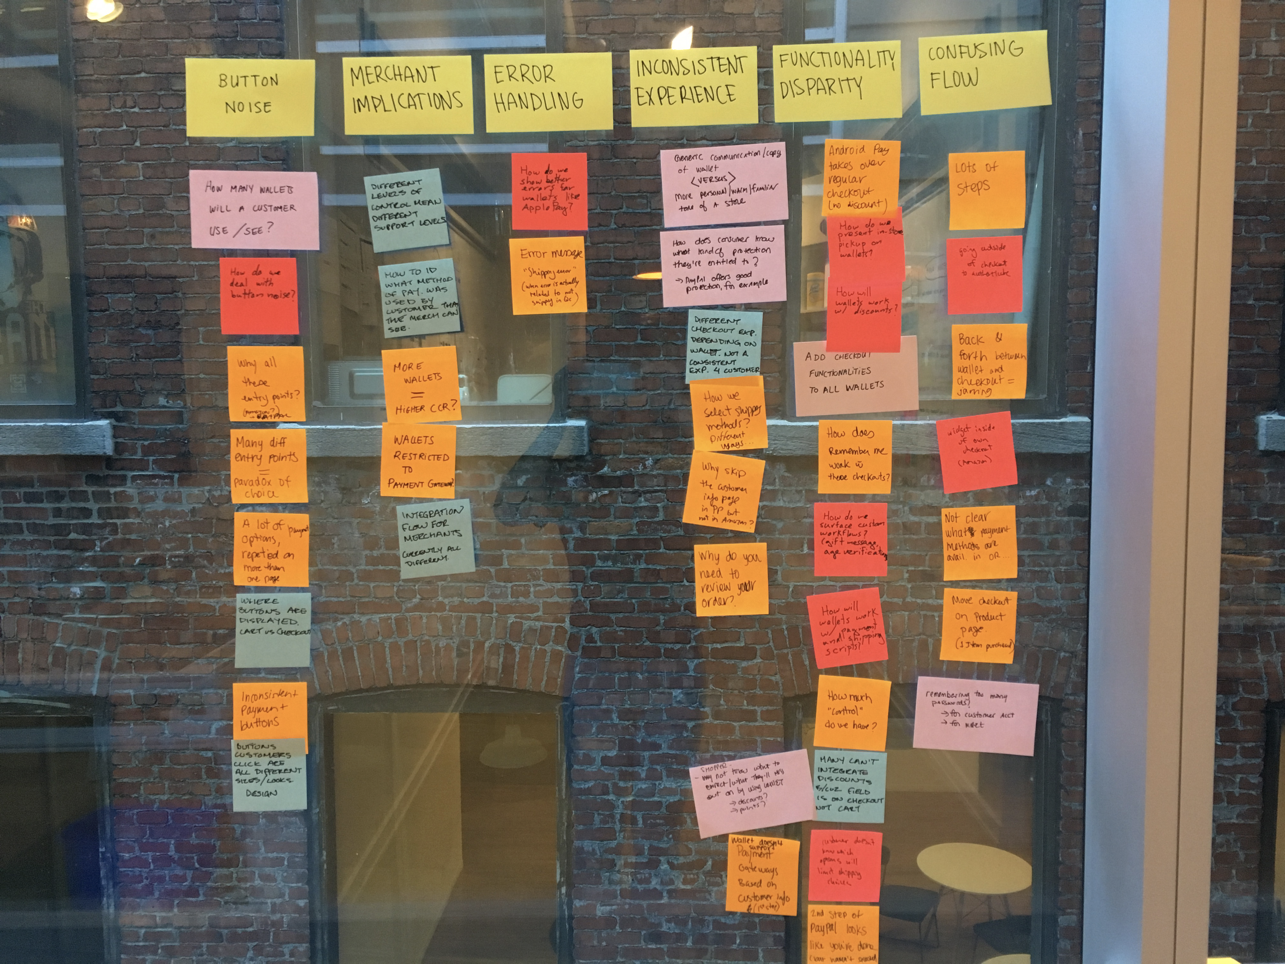 BUTTON
NOISE
MERCHANT
IMPLICATIONS
ERROR
HANDLING
INCONSISTENT
EXPERIENCE
FUNCTIONALITY
DISPARITY
CONFUSING
FLOW
HOW MANY WALLETS
WILL A CUSTOMER
USE / SEE?
How do we
deal with
button noise?
Why all
these
entry points?
Many diff
entry points
=
paradox of
choice
A lot of
options,
repeated on
more than
one page
WHERE
BUTTONS ARE
DISPLAYED.
CART VS CHECKOUT
Inconsistent
Payment
buttons
BUTTONS
CUSTOMERS
CLICK ARE
ALL DIFFERENT
SIZES/LOOKS
DESIGN
DIFFERENT
LEVELS OF
CONTROL MEAN
DIFFERENT
SUPPORT LEVELS
HOW TO ID
WHAT METHOD
OF PAY. WAS
USED BY
CUSTOMER THAN
THE MERCH CAN
SEE.
MORE
WALLETS
=
HIGHER CCR?
WALLETS
RESTRICTED
TO
PAYMENT GATEWAY?
INTEGRATION
FLOW FOR
MERCHANTS
CURRENTLY ALL
DIFFERENT
How do we
show better
errors for
wallets like
Apple Pay?
Error message
"Shipping error"
(when one is actually
related to not
shipping in
Generic communication/copy
of wallet
<VERSUS>
more personal/warm/familiar
tone of a store
How does consumer know
what kind of protection
they're entitled to?
→ PayPal offers good
protection, for example
DIFFERENT
CHECKOUT EXP.
DEPENDING ON
WALLET. NOT A
CONSISTENT
EXP. 4 CUSTOMER
How we
select shipping
methods?
Different
ways
Why skip
the customer
info page
in PP but
not in Amazon?
Why do you
need to
review your
order?
SHOPPER:
may not know what to
expect/what they'll miss
out on by using WALLET
→ discounts?
→ points?
Wallet doesn't
support
Payment
Gateways
Based on
Customer info
Android Pay
takes over
regular
checkout
(no discount)
How do we
present in-store
pickup on
wallets?
How will
wallets work
w/ discounts?
ADD CHECKOUT
FUNCTIONALITIES
TO ALL WALLETS
How does
Remember me
work w
these checkouts?
How do we
surface custom
workflows?
(gift message,
age verification)
How will
wallets work
w/ payment
and shipping
scripts?
How much
"control"
do we have?
MANY CAN'T
INTEGRATE
DISCOUNTS
B/C OUR FIELD
IS ON CHECKOUT
NOT CART
customer doesn't
know which
options will
limit shipping
choices
2nd step of
PayPal looks
like you're done
Lots of
steps
going outside
of checkout
to authenticate
Back &
forth between
wallet and
checkout =
jarring
widget inside
of own
(Amazon)
Not clear
what payment
methods are
avail in
More checkout
on Product
page
remembering too many
passwords?
→ for customer ACCT
→ for wallet